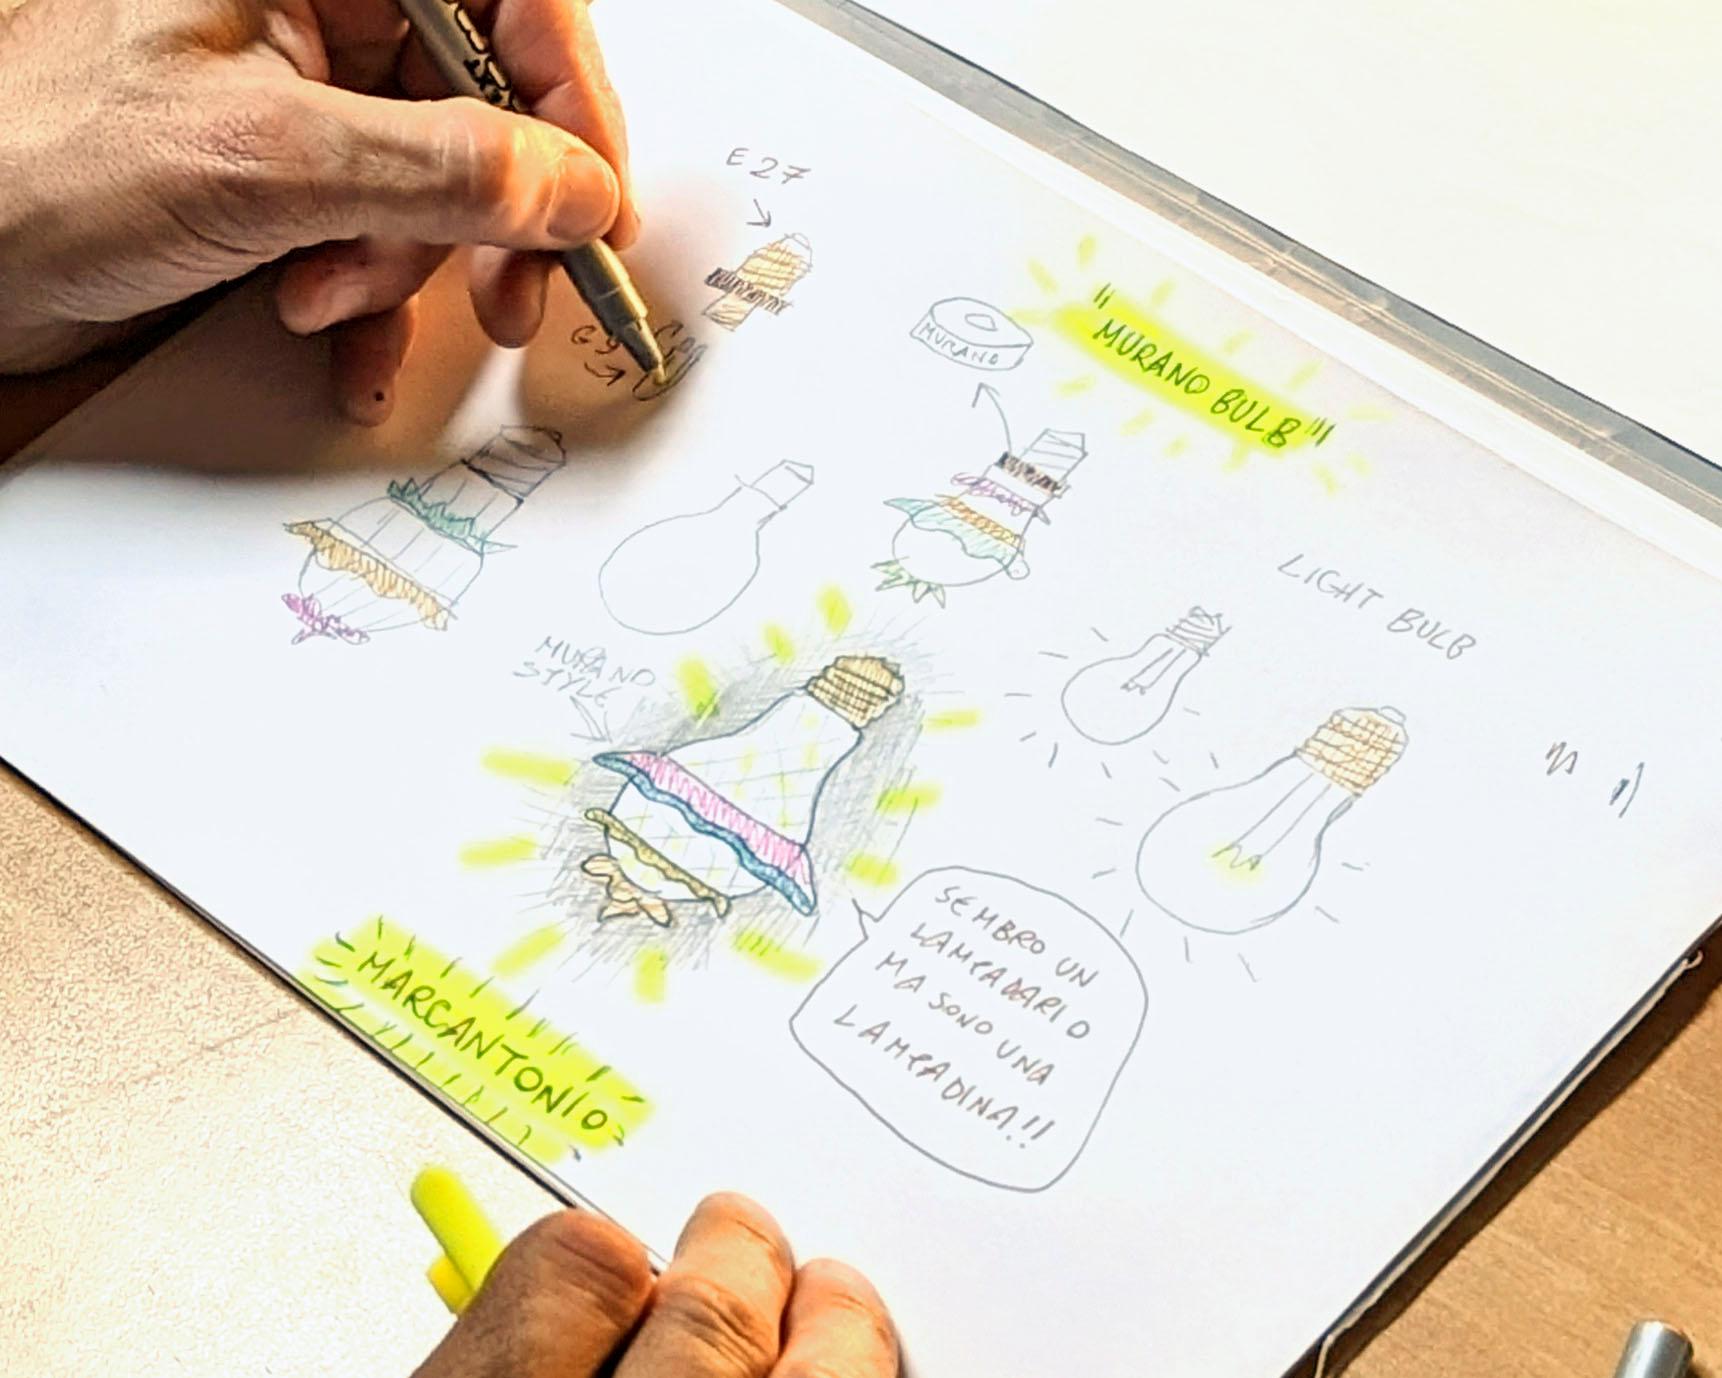 E27
G9
MURANO
"MURANO BULB"
LIGHT BULB
MURANO
STYLE
SEMBRO UN
LAMPADARIO
MA SONO UNA
LAMPADINA!!
MARCANTONIO